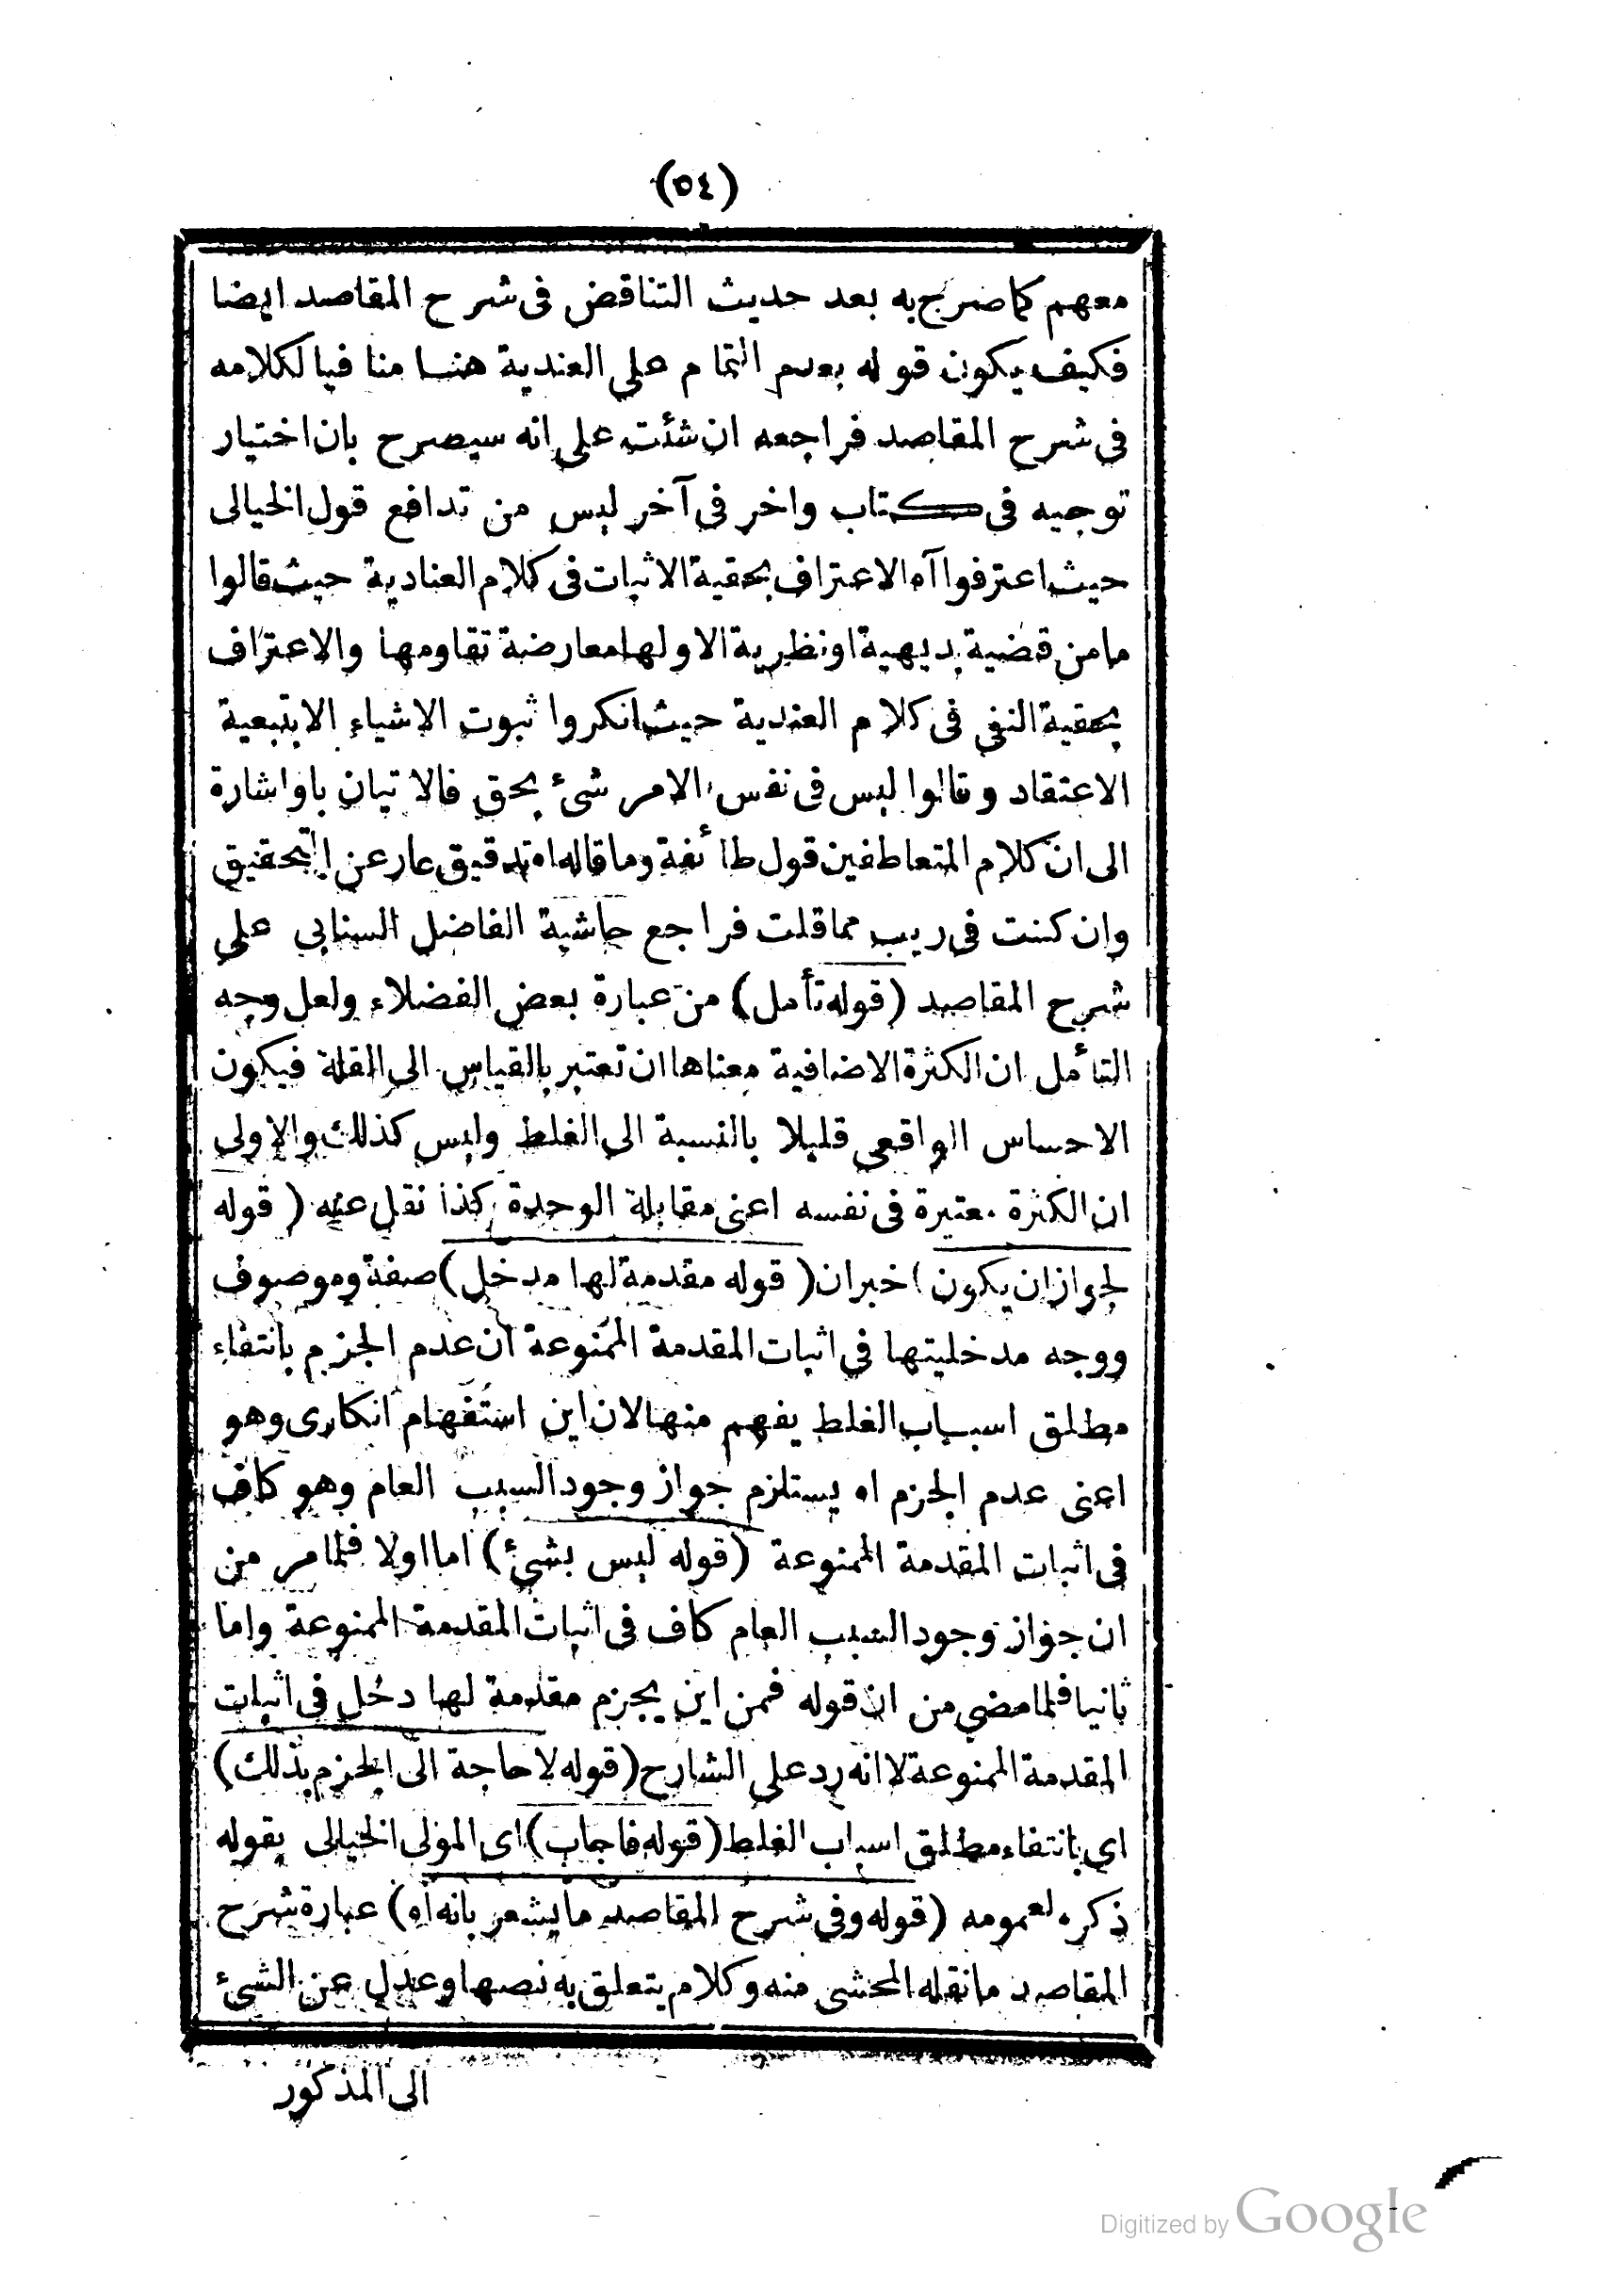 (٥٤)
معهم كما صرح به بعد حديث التناقض فى شرح المقاصد ايضا
فكيف يكون قوله بعدم التمام على العندية هنا منافيا لكلامه
فى شرح المقاصد فراجعه ان شئت على انه سيصرح بان اختيار
توجيه فى كتاب واخر فى آخر ليس من تدافع قول الخيالى
حيث اعترفوا آه الاعتراف بحقية الاثبات فى كلام العنادية حيث قالوا
مامن قضية بديهية او نظرية الا ولها معارضة تقاومها والاعتراف
بحقية النفى فى كلام العندية حيث انكروا ثبوت الاشياء الا بتبعية
الاعتقاد وقالوا ليس فى نفس الامر شئ بحق فالاتيان باو اشارة
الى ان كلام المتعاطفين قول طائفة وما قاله اه تدقيق عار عن التحقيق
وان كنت فى ريب مما قلت فراجع حاشية الفاضل السنابى على
شرح المقاصد (قوله تأمل) من عبارة بعض الفضلاء ولعل وجه
التأمل ان الكثرة الاضافية معناها ان تعتبر بالقياس الى القلة فيكون
الاحساس الواقعى قليلا بالنسبة الى الغلط وليس كذلك والاولى
ان الكثرة معتبرة فى نفسه اعنى مقابلة الوحدة كذا نقل عنه (قوله
لجواز ان يكون) خبر ان (قوله مقدمة لها مدخل) صفة وموصوف
ووجه مدخليتها فى اثبات المقدمة الممنوعة ان عدم الجزم بانتفاء
مطلق اسباب الغلط يفهم منها لان اين استفهام انكارى وهو
اعنى عدم الجزم اه يستلزم جواز وجود السبب العام وهو كاف
فى اثبات المقدمة الممنوعة (قوله ليس بشئ) اما اولا فلما مر من
ان جواز وجود السبب العام كاف فى اثبات المقدمة الممنوعة واما
ثانيا فلما مضى من ان قوله فمن اين يجزم مقدمة لها دخل فى اثبات
المقدمة الممنوعة لا انه رد على الشارح (قوله لا حاجة الى الجزم بذلك)
اى بانتفاء مطلق اسباب الغلط (قوله فاجاب) اى المولى الخيالى بقوله
ذكره لعمومه (قوله وفى شرح المقاصد ما يشعر بانه اه) عبارة شرح
المقاصد ما نقله المحشى منه وكلام يتعلق به نصها وعدل عن الشئ
الى المذكور
Digitized by Google